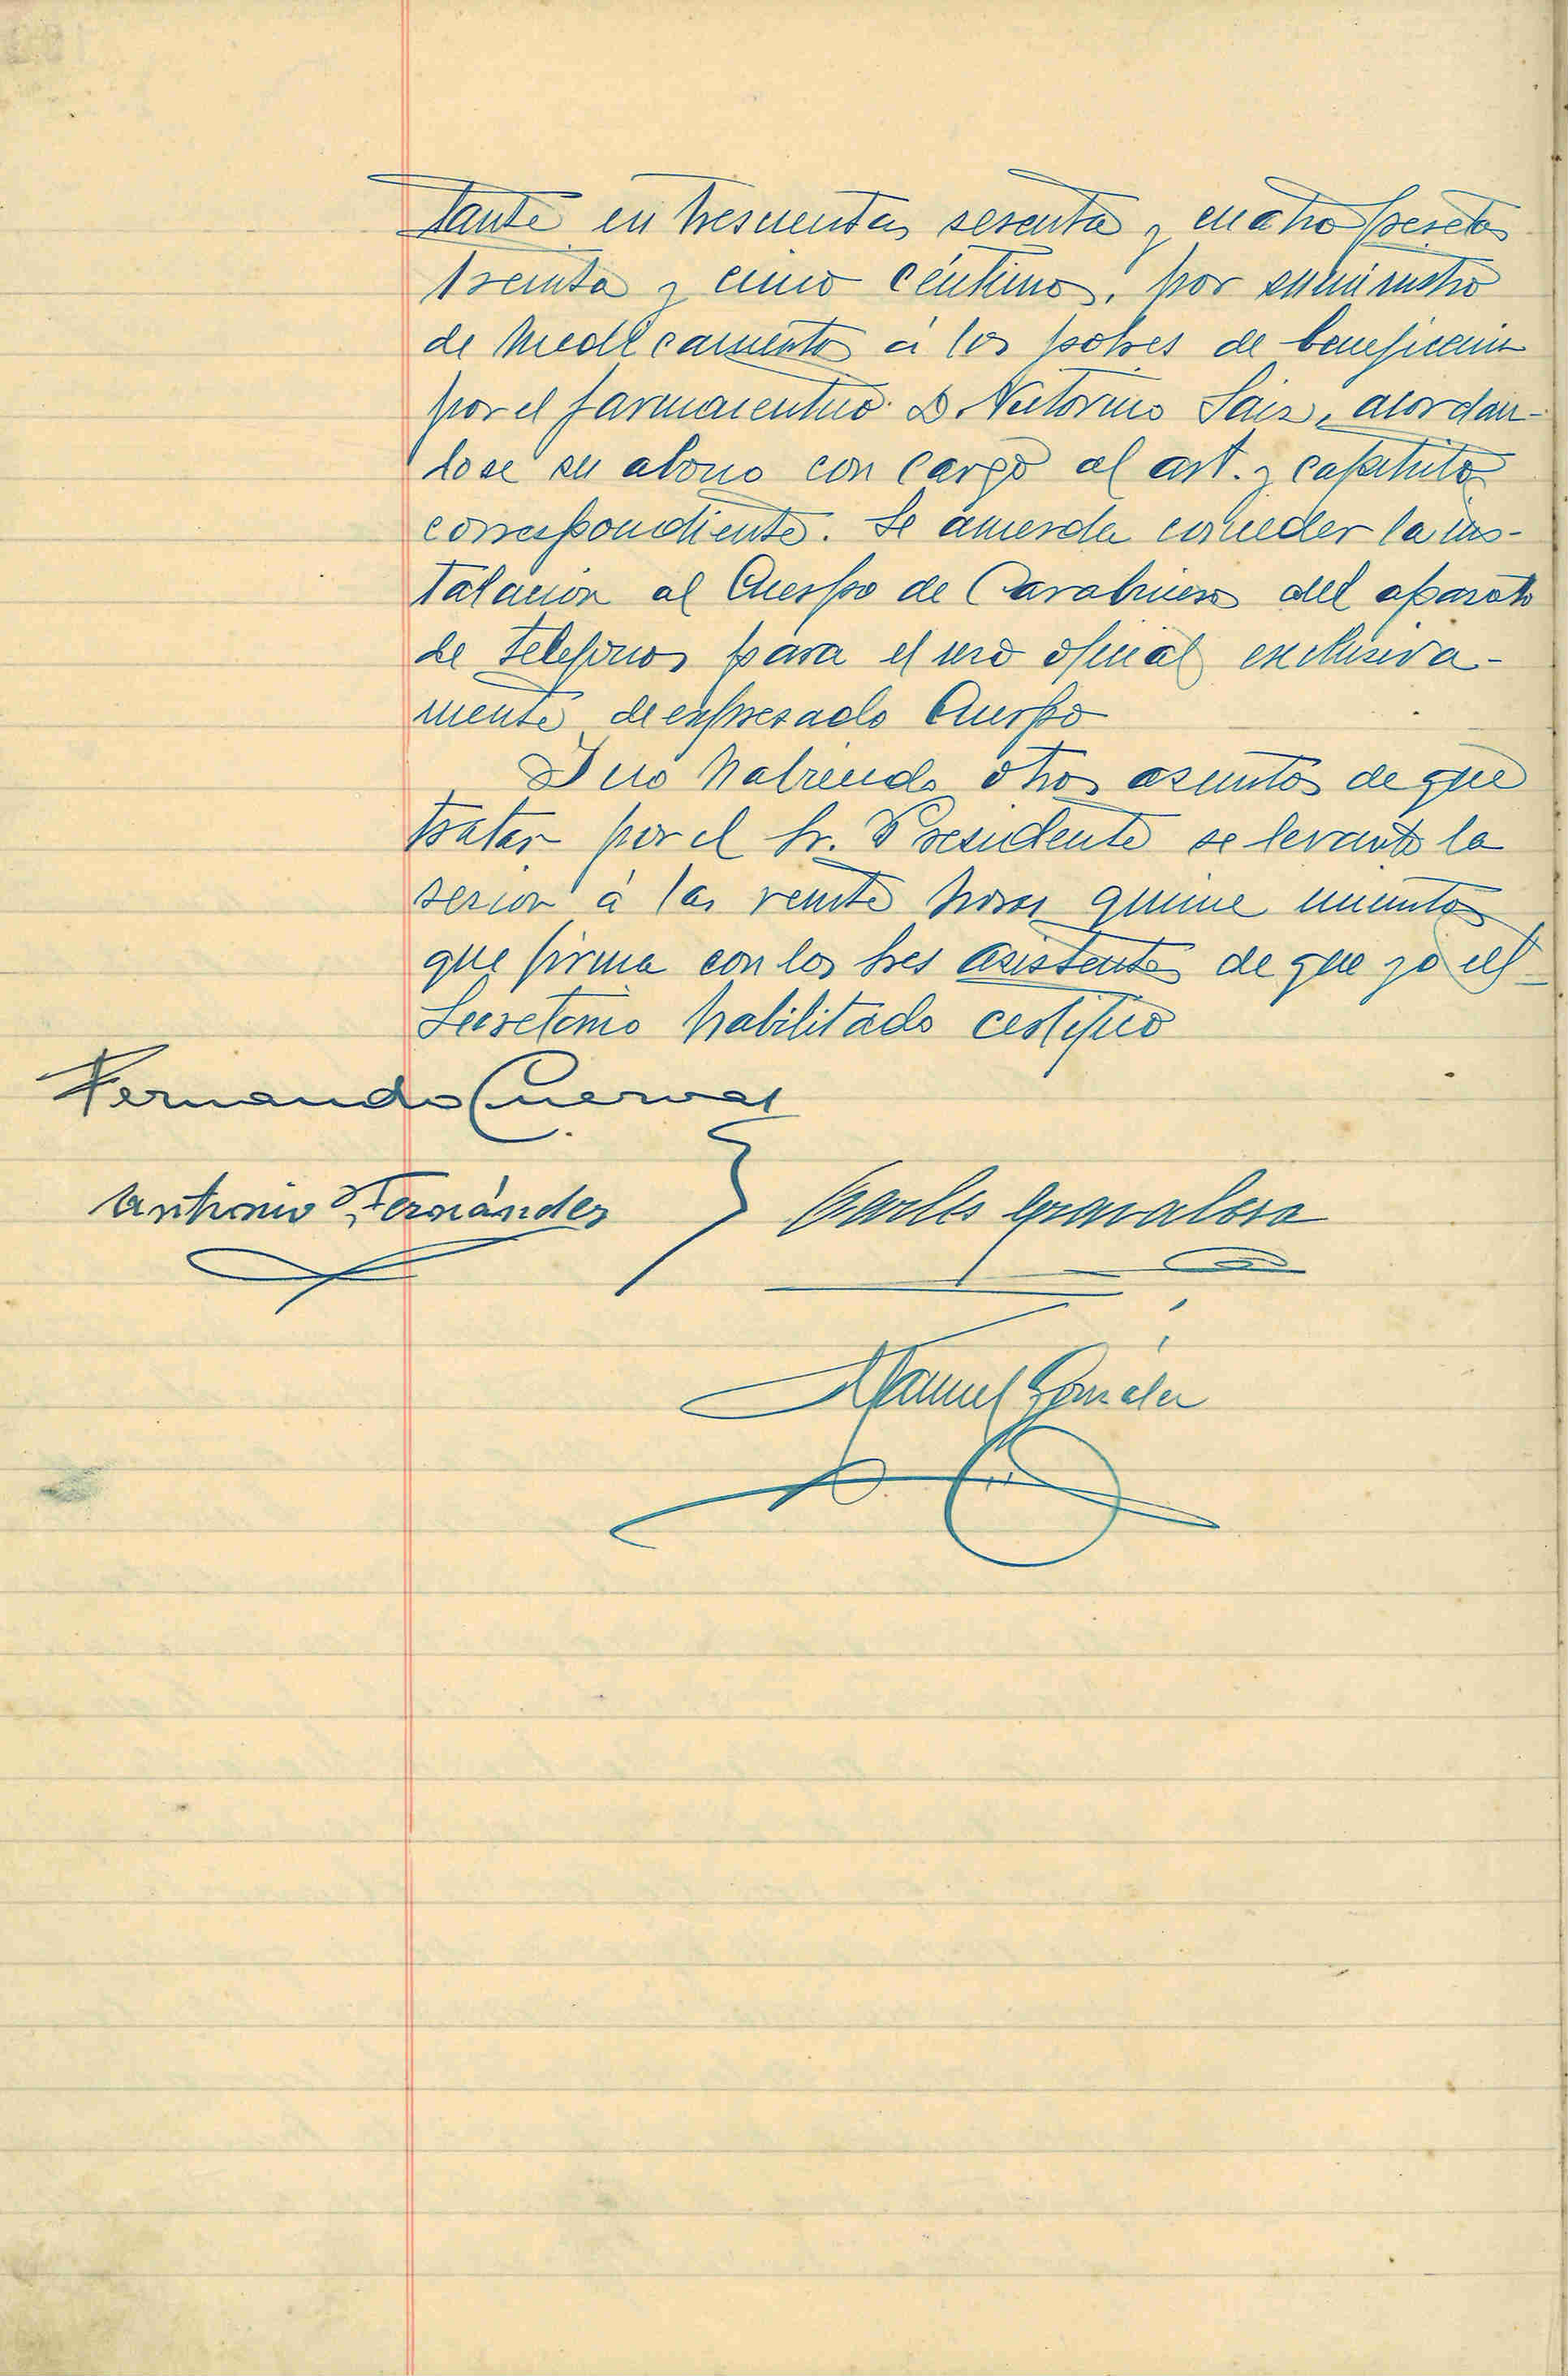 tante en trescientas sesenta y cuatro pesetas
treinta y cinco céntimos, por suministro
de medicamentos á los pobres de beneficencia
por el farmaceutico D. Victorino Sáiz, acordan-
dose su abono con cargo al art. y capitulo
correspondiente. Se acuerda conceder la ins-
talacion al Cuerpo de Carabineros del aparato
de telefonos para el uso oficial exclusiva-
mente de expresado Cuerpo
Y no habiendo otros asuntos de que
tratar por el Sr. Presidente se levantó la
sesion á las veinte horas quince minutos
que firma con los Sres asistentes de que yo el
Secretario habilitado certifico
Fernando Cuervas
Antonio Fernández Carlos Gravalosa
Manuel González